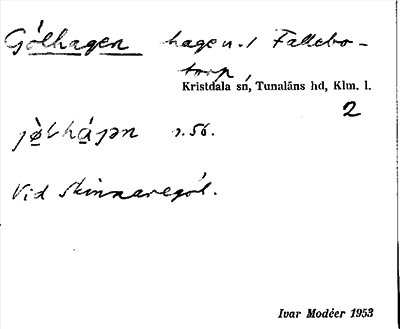 Gölhagen hage n. / Fallebo-
torp
Kristdala sn, Tunaläns hd, Klm. l.
2
s. 56.
Vid Skinnaregöl.
Ivar Modéer 1953